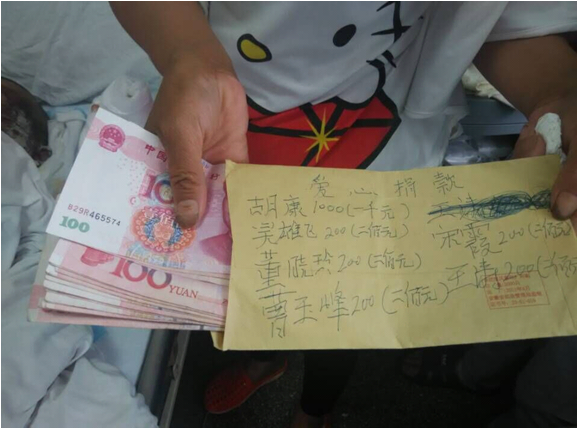 爱心捐款
胡康1000(一千元)
吴雄飞200(二佰元) 宋霞200(二佰元)
董晓玲200(二佰元) 王涛200(二佰元)
曹玉峰200(二佰元)
中国
100
B29R465574
100
100
YUAN